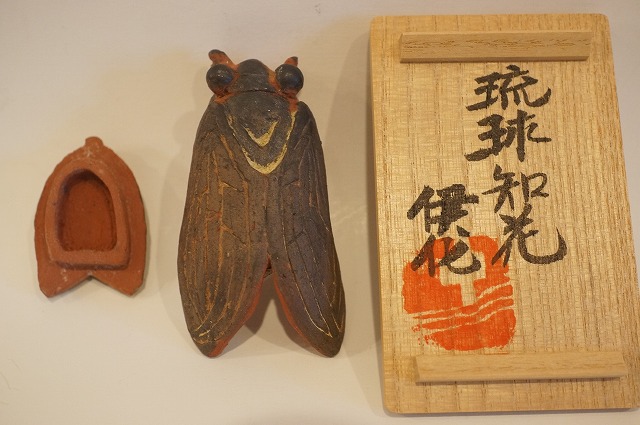 琉球知花
伊化